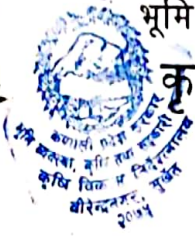 भूमि
कृ
कर्णाली प्रदेश सरकार
भूमि व्यवस्था, कृषि तथा सहकारी
कृषि विकास निर्देशनालय
वीरेन्द्रनगर, सुर्खेत
२०७५